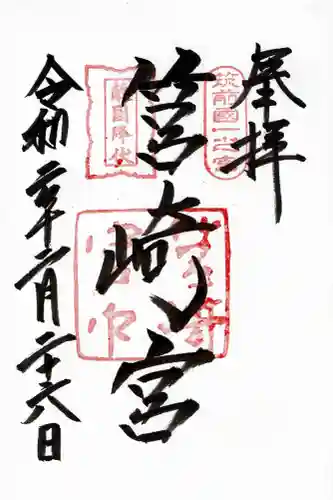 奉拝
筑前國一之宮
筥崎宮
敵國降伏
令和二年二月二十六日